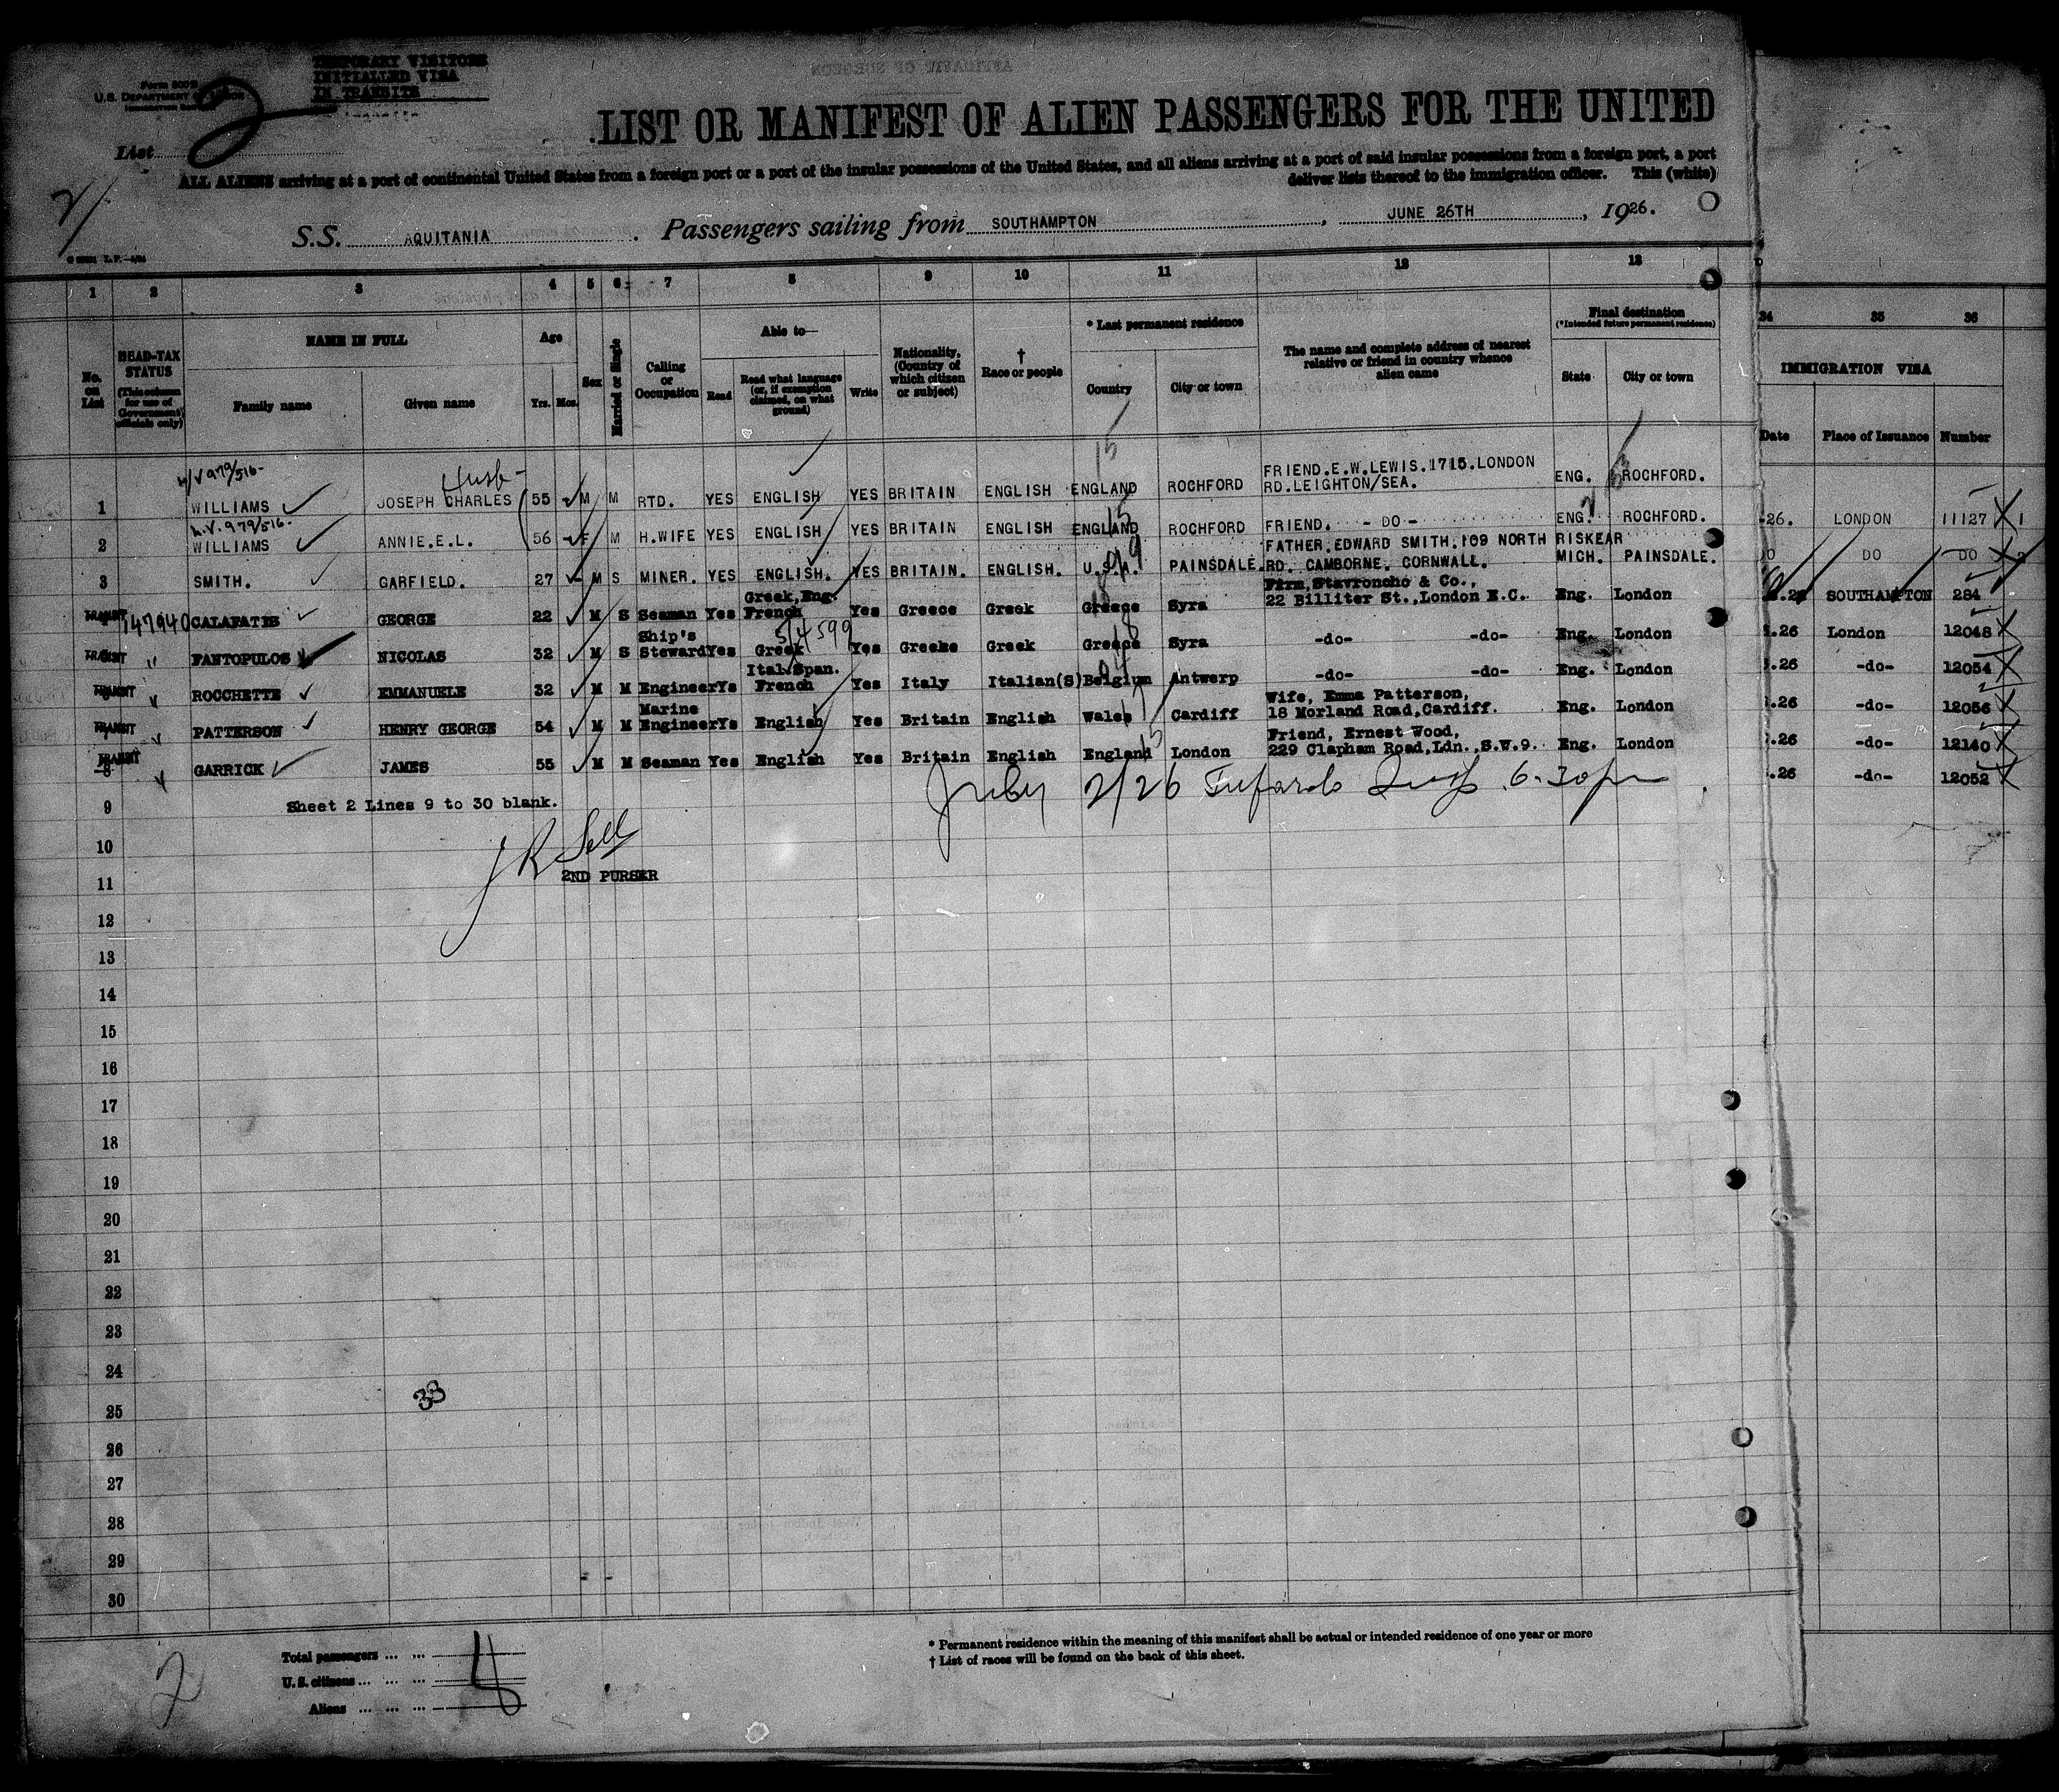 TEMPORARY VISITORS
INITIALLED VISA
IN TRANSITS
U.S. Department of Labor
List 2
LIST OR MANIFEST OF ALIEN PASSENGERS FOR THE UNITED
ALL ALIENS arriving at a port of continental United States from a foreign port or a port of the insular possessions of the United States, and all aliens arriving at a port of said insular possessions from a foreign port, a port
deliver lists thereof to the immigration officer. This (white)
S.S. AQUITANIA. Passengers sailing from SOUTHAMPTON, JUNE 26TH, 1926.
1 2 3 4 5 6 7 8 9 10 11 12 13 34 35 36
No. on List
HEAD-TAX STATUS (This column for use of Government officials only)
NAME IN FULL
Family name Given name
Age Yrs. Mos.
Sex
Married or Single
Calling or Occupation
Able to—
Read Read what language (or, if exemption claimed, on what ground) Write
Nationality, (Country of which citizen or subject)
† Race or people
* Last permanent residence
Country City or town
The name and complete address of nearest relative or friend in country whence alien came
Final destination (*Intended future permanent residence)
State City or town
IMMIGRATION VISA
Date Place of Issuance Number
979/516- Husb-
1 WILLIAMS JOSEPH CHARLES 55 M M RTD. YES ENGLISH YES BRITAIN ENGLISH ENGLAND ROCHFORD FRIEND.E.W.LEWIS.1715.LONDON RD.LEIGHTON/SEA. ENG. ROCHFORD. 26. LONDON 11127
979/516-
2 WILLIAMS ANNIE.E.L. 56 F M H.WIFE YES ENGLISH YES BRITAIN ENGLISH ENGLAND ROCHFORD FRIEND. - DO - ENG. ROCHFORD. DO DO
3 SMITH. GARFIELD. 27 M S MINER. YES ENGLISH. YES BRITAIN. ENGLISH. U.S.A. PAINSDALE. FATHER.EDWARD SMITH.109 NORTH RISKEAR RD. CAMBORNE. CORNWALL. MICH. PAINSDALE. SOUTHAMPTON 284
TRANSIT 147940 CALAFATIS GEORGE 22 M S Seaman Yes Greek,Eng. French Yes Greece Greek Greece Syra Firm,Stavroncho & Co., 22 Billiter St.,London E.C. Eng. London .26 London 12048
TRANSIT " FANTOPULOS NICOLAS 32 M S Ship's Steward Yes Greek Yes Greeke Greek Greece Syra -do- -do- Eng. London .26 -do- 12054
TRANSIT ROCCHETTE EMMANUELE 32 M M Engineer Ys Ital.Span. French Yes Italy Italian(S) Belgium Antwerp -do- -do- Eng. London .26 -do- 12056
TRANSIT PATTERSON HENRY GEORGE 54 M M Marine Engineer Ys English Yes Britain English Wales Cardiff Wife, Emma Patterson, 18 Morland Road,Cardiff. Eng. London .26 -do- 12140
TRANSIT 8 GARRICK JAMES 55 M M Seaman Yes English Yes Britain English England London Friend, Ernest Wood, 229 Clapham Road,Ldn.,S.W.9. Eng. London .26 -do- 12052
July 2/26 6-30pm
9 Sheet 2 Lines 9 to 30 blank.
10
J R Sell
11 2ND PURSER
12
13
14
15
16
17
18
19
20
21
22
23
24
33
25
26
27
28
29
30
Total passengers ... ...
U.S. citizens ... ... ...
Aliens ... ... ...
2
* Permanent residence within the meaning of this manifest shall be actual or intended residence of one year or more
† List of races will be found on the back of this sheet.